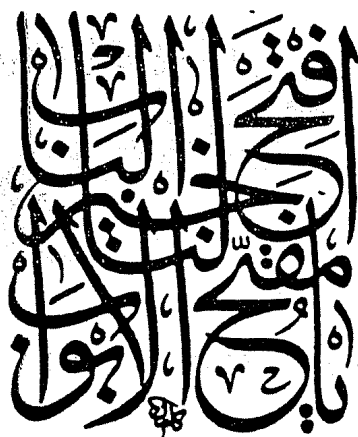 يا مفتّح الابواب
افتح لنا خير الباب